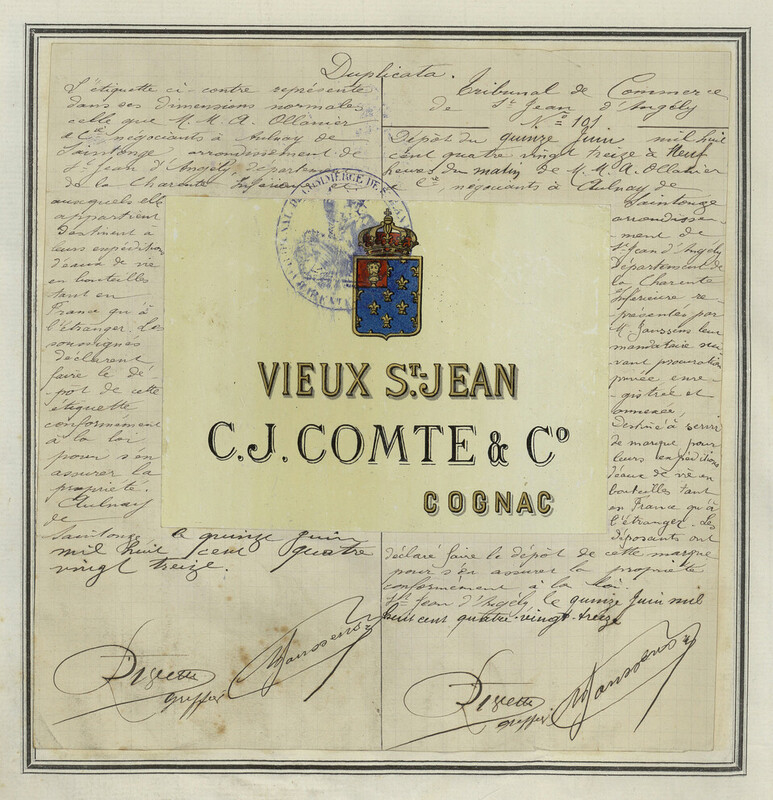 Duplicata.
L'étiquette ci-contre représente
dans ses dimensions normales
celle que M. M. A. Ollanier
& Cie négociants à Aulnay de
Saintonge arrondissement de
St Jean d'Angély département
de la Charente Inférieure et
auxquels elle
appartient
Destinent à
leurs expéditions
d'eaux de vie
en bouteilles
tant en
France qu'à
l'étranger. Les
soussignés
déclarent
faire le dé
-pot de cette
étiquette
conformément
à la loi
pour s'en
assurer la
propriété.
Aulnay
de
Saintonge, le quinze Juin
mil huit cent quatre
vingt treize.
greffier
Tribunal de Commerce
de St Jean d'Angély
No 191
Dépôt du quinze Juin mil huit
cent quatre vingt treize à neuf
heures du matin De M. M. A. Ollanier
& Cie négociants à Aulnay de
Saintonge
arrondisse-
-ment de
St Jean d'Angély
Département de
la Charente
Inférieure re-
-présentés par
M. Jaussens leur
mandataire sui
vant procuration
privée enre-
-gistrée et
annexée,
Destinée à servir
de marque pour
leurs expéditions
d'eaux de vie en
bouteilles tant
en France qu'à
l'étranger. Les
déposants ont
déclaré faire le dépôt de cette marque
pour s'en assurer la propriété
conformément à la loi.
St Jean d'Angély le quinze Juin mil
huit cent quatre-vingt-treize
greffier
TRIBUNAL DE COMMERCE DE St JEAN
VIEUX ST-JEAN
C.J. COMTE & Co
COGNAC